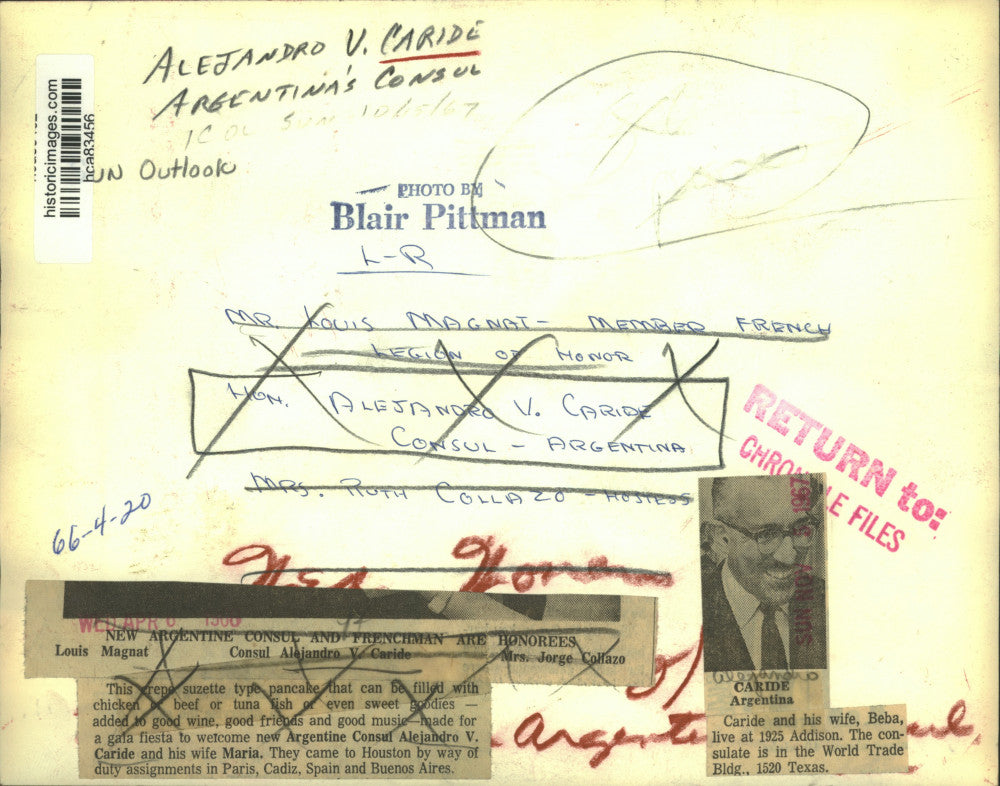 ALEJANDRO V. CARIDE
ARGENTINA'S CONSUL
historicimages.com
hca83456
UN Outlook
PHOTO BY
Blair Pittman
L-R
MR. LOUIS MAGNAT - MEMBER FRENCH
LEGION OF HONOR
HON. ALEJANDRO V. CARIDE
CONSUL - ARGENTINA
MRS. RUTH COLLAZO - HOSTESS
RETURN to:
CHRONICLE FILES
66-4-20
SUN NOV 5 1967
WED APR 6 1966
NEW ARGENTINE CONSUL AND FRENCHMAN ARE HONOREES
Louis Magnat Consul Alejandro V. Caride Mrs. Jorge Collazo
of
This crepe suzette type pancake that can be filled with
chicken beef or tuna fish even sweet goodies —
added to good wine, good friends and good music made for
a gala fiesta to welcome new Argentine Consul Alejandro V.
Caride and his wife Maria. They came to Houston by way of
duty assignments in Paris, Cadiz, Spain and Buenos Aires.
CARIDE
Argentina
Caride and his wife, Beba,
live at 1925 Addison. The con-
sulate is in the World Trade
Bldg., 1520 Texas.